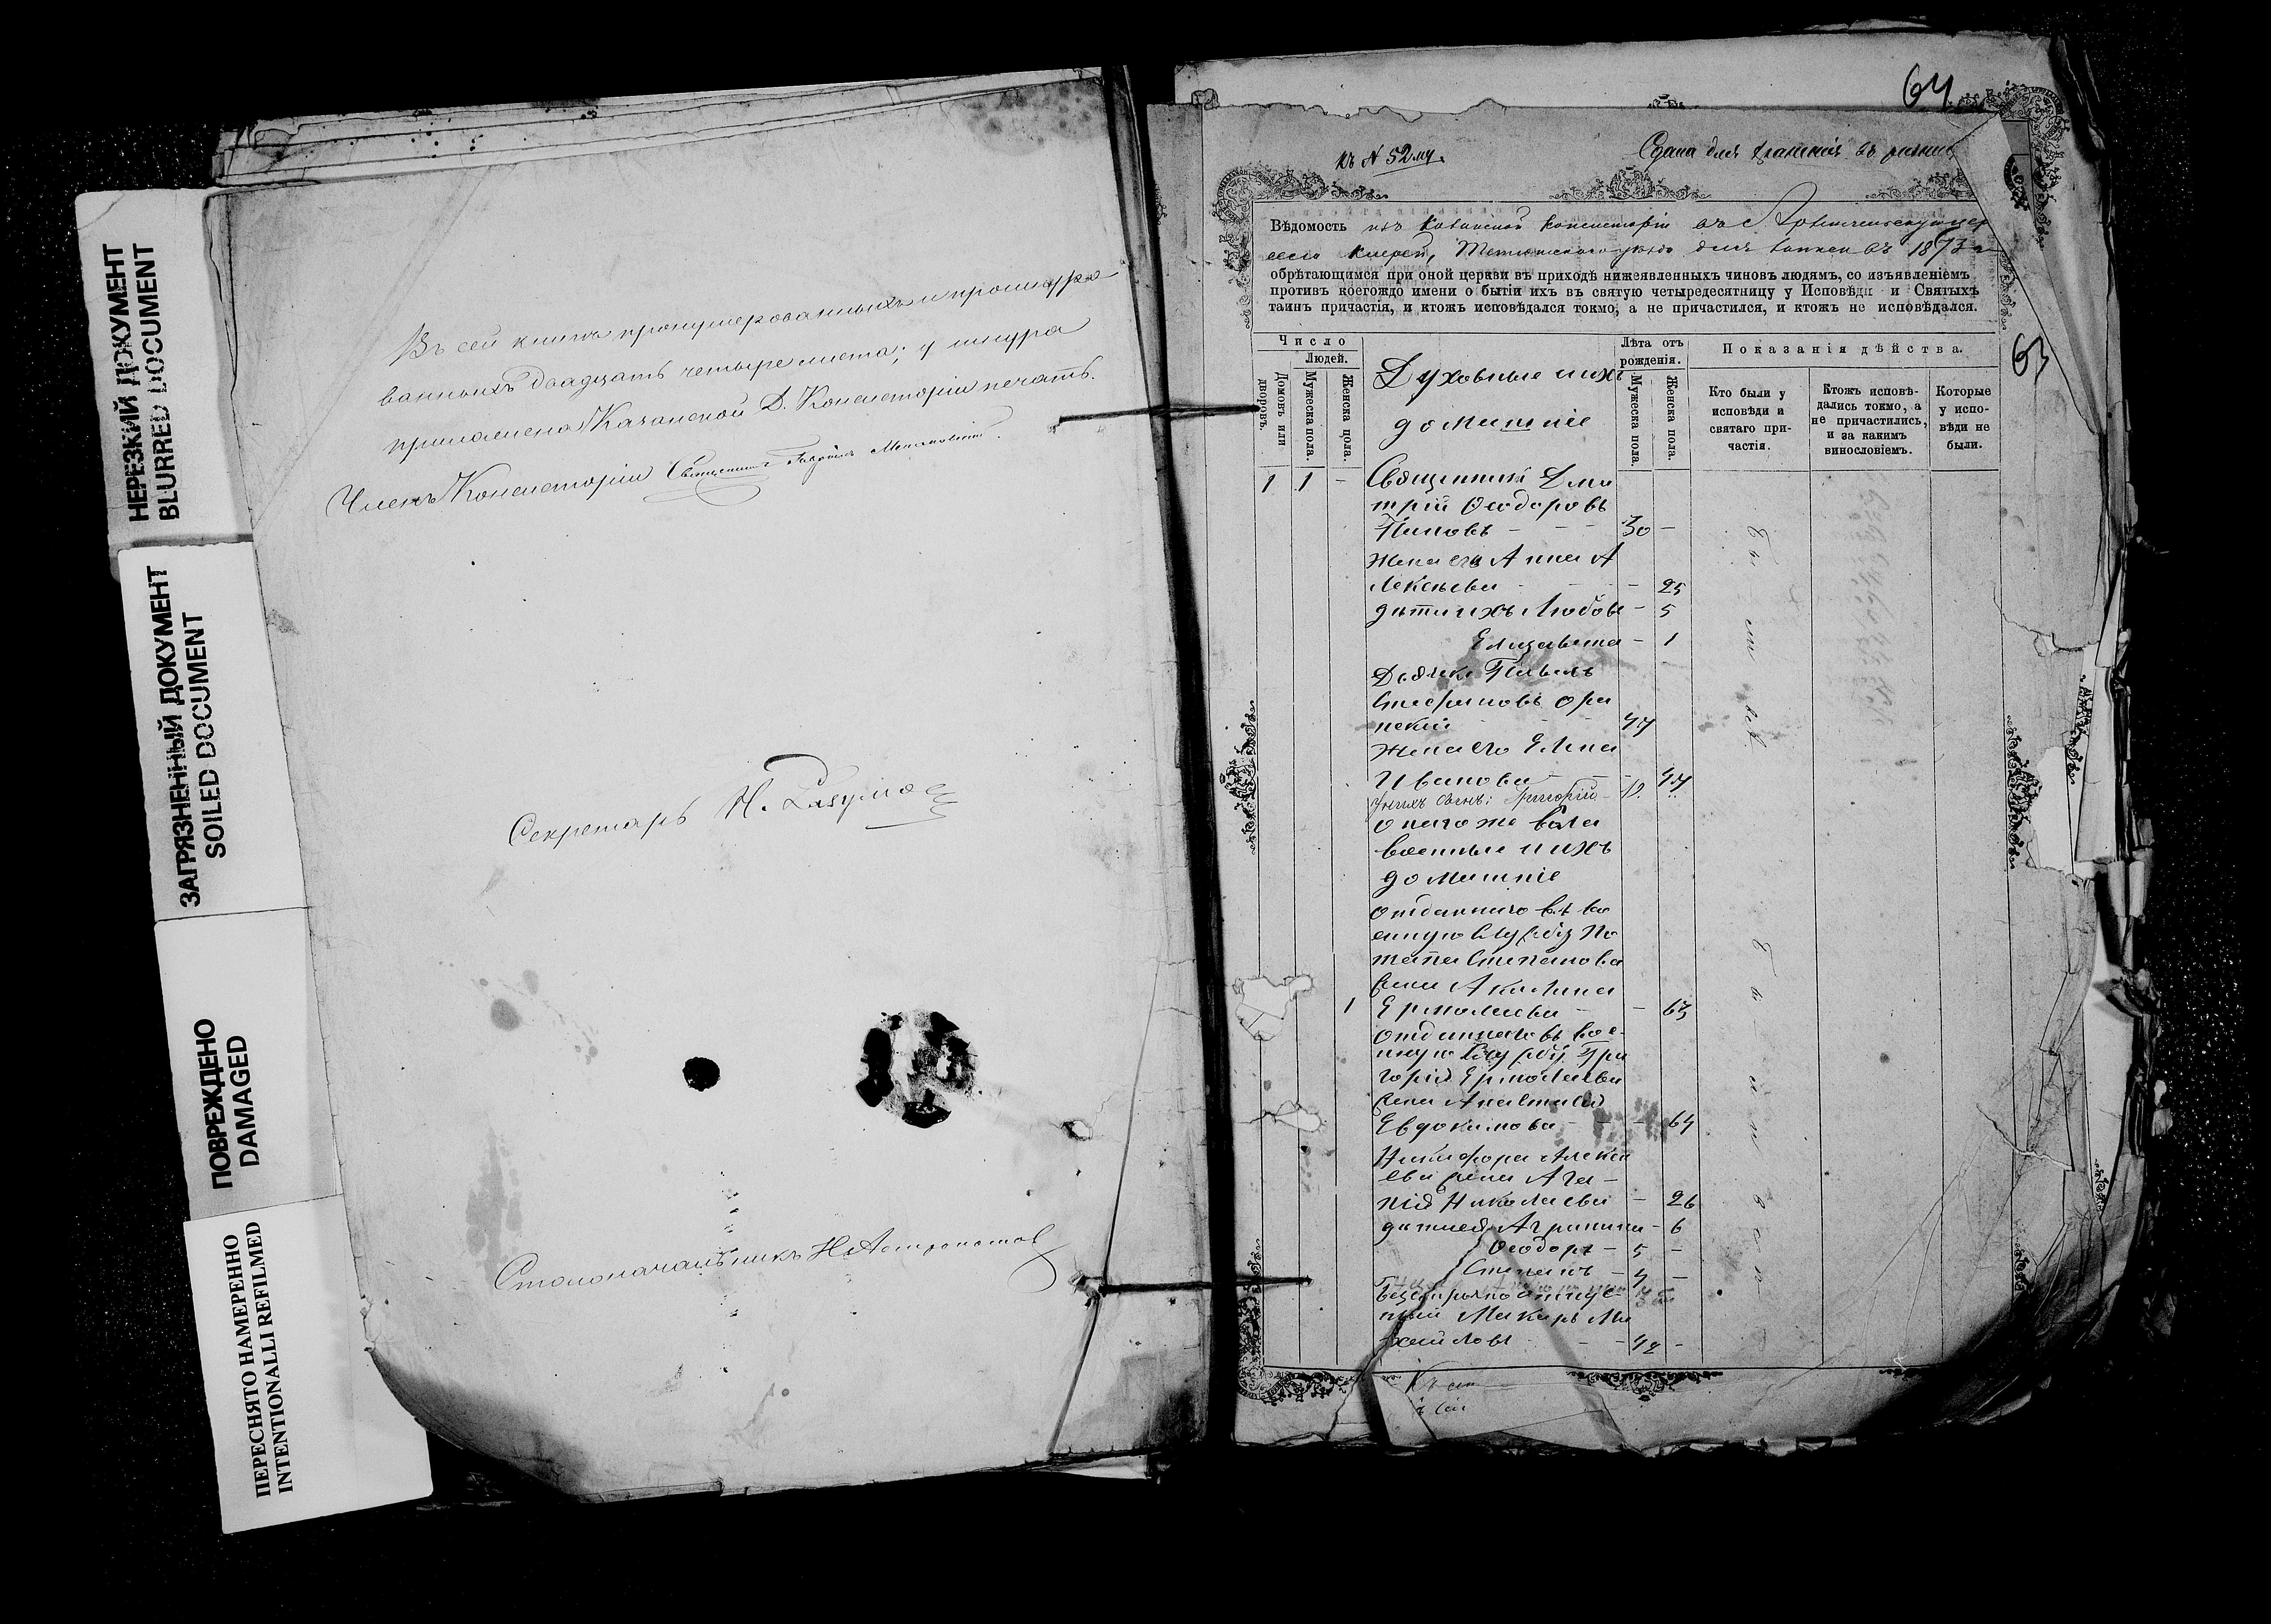 НЕРЕЗКИЙ ДОКУМЕНТ
BLURRED DOCUMENT
ЗАГРЯЗНЕННЫЙ ДОКУМЕНТ
SOILED DOCUMENT
ПОВРЕЖДЕНО
DAMAGED
ПЕРЕСНЯТО НАМЕРЕННО
INTENTIONALLI REFILMED
Въ сей книгѣ пронумерованныхъ и прошнуро
ванныхъ двадцать четыре листа; у шнура
приложена Казанской Д. Консисторіи печать.
Членъ Консисторіи Священникъ Гавріилъ
Секретарь Н.
Столоначальникъ Н.
64
къ № 52му.
Сдана для храненія въ
63
Вѣдомость изъ Казанской Консисторіи въ с.
Тетюшскаго уѣзда для записи въ 1873 г.
обрѣтающимся при оной церкви въ приходѣ нижеявленныхъ чиновъ людямъ, со изъявленіемъ
противъ коегождо имени о бытіи ихъ въ святую четыредесятницу у Исповѣди и Святыхъ
таинъ причастія, и ктожъ исповѣдался токмо, а не причастился, и ктожъ не исповѣдался.
Число
Людей.
Домовъ или дворовъ.
Мужеска пола.
Женска пола.
Духовные и ихъ
домашніе
Лѣта отъ рожденія.
Мужеска пола.
Женска пола.
Показанія дѣйства.
Кто были у исповѣди и святаго причастія.
Ктожъ исповѣдались токмо, а не причастились, и за какимъ винословіемъ.
Которые у исповѣди не были.
1 1 - Священникъ Дми
трій Ѳеодоровъ
Поповъ - - - 30 -
Жена его Анна А
лексѣева - - - 25
дѣти ихъ Любовь - 5
Елизавета - 1
Дьячекъ Павелъ
Стефановъ
47
Жена его Елена
Иванова - - 47
У нихъ сынъ: Григорій - 12.
онаго же села
военные и ихъ
домашніе
отданнаго въ во
енную службу По
тапа Степанова
жена Акилина
1 Ермолаева - - 63
отданнаго въ вое-
нную службу Гри
горія Ермолаева
жена Анастасія
Евдокимова - - 64
Никифора Алексѣ
ева жена Ага-
пія Николаева - 26
дѣти ея Агрипина - 6
Ѳеодоръ - 5 -
Степанъ - 4 -
Безсрочно отпуск-
ный Макаръ Ми
хайловъ - - 42 -